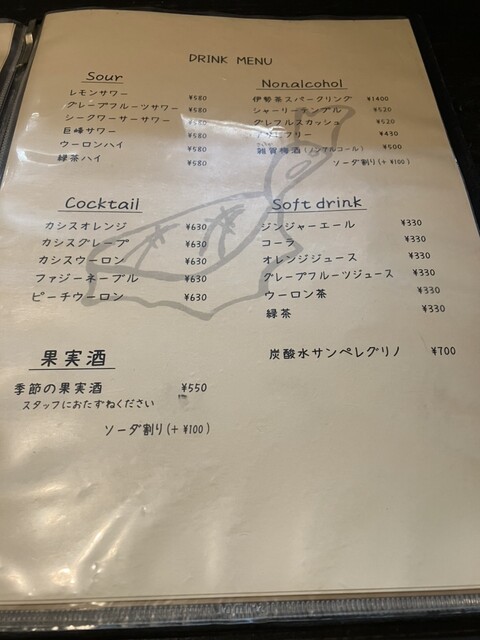 DRINK MENU
Sour
レモンサワー ¥580
グレープフルーツサワー ¥580
シークワーサーサワー ¥580
巨峰サワー ¥580
ウーロンハイ ¥580
緑茶ハイ ¥580
Nonalcohol
伊勢茶スパークリング ¥1400
シャーリーテンプル ¥520
グレフルスカッシュ ¥520
フリー ¥430
雑賀梅酒(ノンアルコール) ¥500
ソーダ割り(+ ¥100)
Cocktail
カシスオレンジ ¥630
カシスグレープ ¥630
カシスウーロン ¥630
ファジーネーブル ¥630
ピーチウーロン ¥630
Soft drink
ジンジャーエール ¥330
コーラ ¥330
オレンジジュース ¥330
グレープフルーツジュース ¥330
ウーロン茶 ¥330
緑茶 ¥330
果実酒
季節の果実酒 ¥550
スタッフにおたずねください
ソーダ割り(+ ¥100)
炭酸水サンペレグリノ ¥700